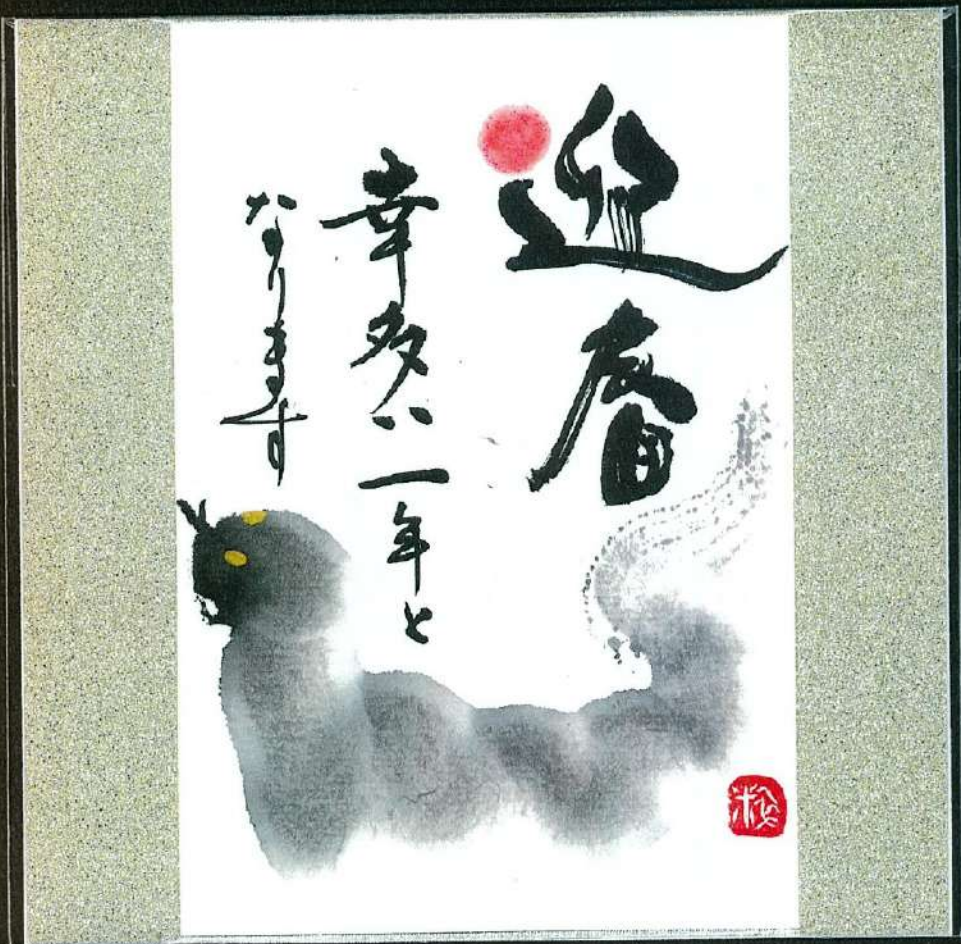 迎春
幸多い一年と
なります